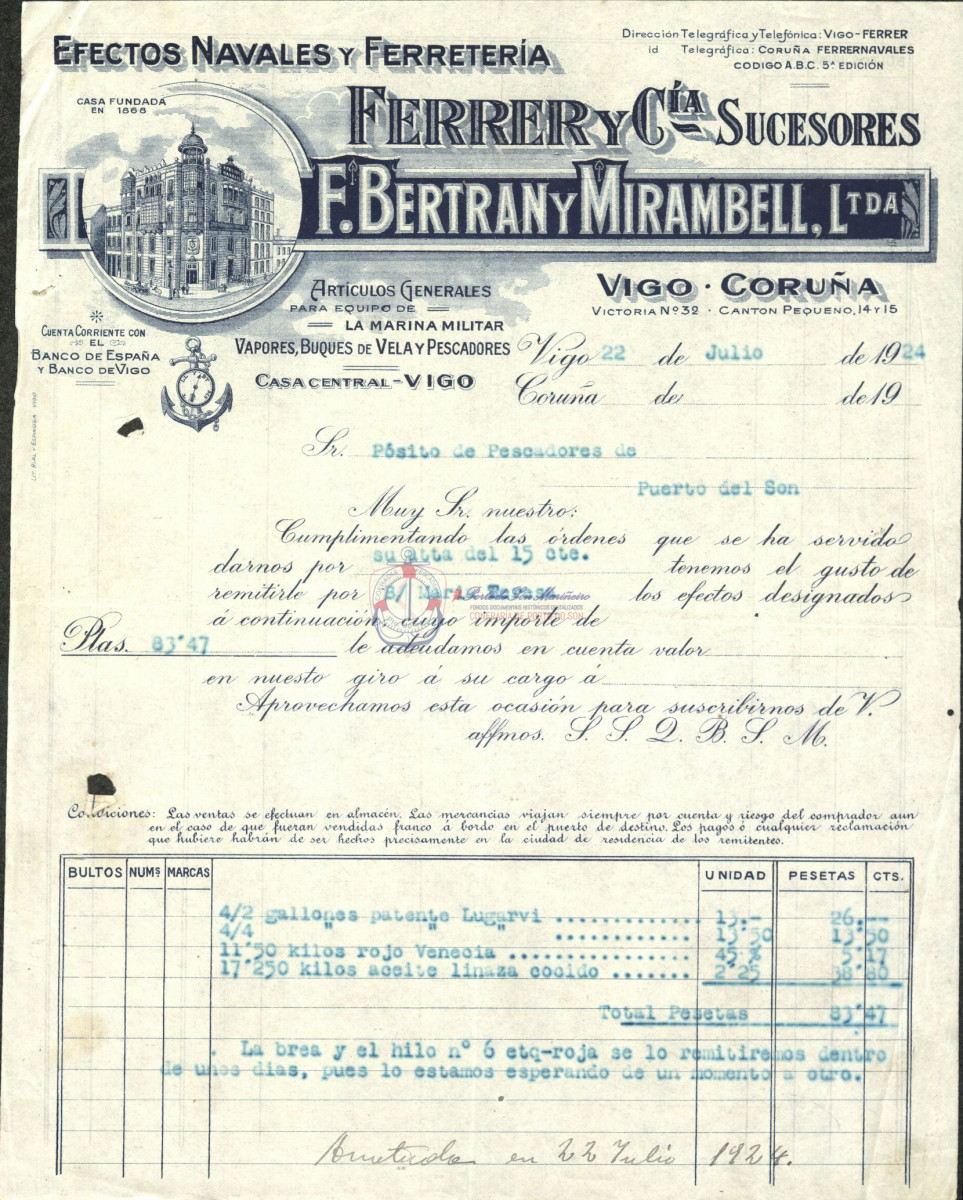 EFECTOS NAVALES Y FERRETERÍA
Dirección Telegráfica y Telefónica: VIGO-FERRER
id Telegráfica: CORUÑA FERRERNAVALES
CODIGO A.B.C. 5ª EDICIÓN
CASA FUNDADA
EN 1868
FERRER Y CÍA SUCESORES
F. BERTRAN Y MIRAMBELL, LTDA
ARTÍCULOS GENERALES
PARA EQUIPO DE
LA MARINA MILITAR
VAPORES, BUQUES DE VELA Y PESCADORES
CASA CENTRAL-VIGO
VIGO · CORUÑA
VICTORIA Nº 32 · CANTON PEQUENO, 14 Y 15
CUENTA CORRIENTE CON
EL
BANCO DE ESPAÑA
Y BANCO DE VIGO
LIT. RIAL Y ESPINOSA VIGO
Vigo 22 de Julio de 1924
Coruña de de 19
Sr. Pósito de Pescadores de
Puerto del Son
Muy Sr. nuestro:
Cumplimentando las órdenes que se ha servido
darnos por su atta del 15 cte. tenemos el gusto de
remitirle por los efectos designados
á continuación, cuyo importe de
Ptas. 83'47 le adeudamos en cuenta valor
en nuesto giro á su cargo á
Aprovechamos esta ocasión para suscribirnos de V.
affmos. S. S. Q. B. S. M.
FONDOS DOCUMENTAIS HISTÓRICOS DIXITALIZADOS
CONFRARÍA DE PORTO DO SON
Condiciones: Las ventas se efectuan en almacén. Las mercancias viajan siempre por cuenta y riesgo del comprador aun
en el caso de que fueran vendidas franco á bordo en el puerto de destino. Los pagos ó cualquier reclamación
que hubiere habrán de ser hechos precisamente en la ciudad de residencia de los remitentes.
BULTOS NUMS MARCAS UNIDAD PESETAS CTS.
4/2 gallones patente Lugarvi .............. 13.- 26.--
4/4 " " " .............. 13'50 13'50
11'50 kilos rojo Venecia .................. 45 % 5'17
17'250 kilos aceite linaza cocido ....... 2'25 38'80
Total Pesetas 83'47
. La brea y el hilo nº 6 etq-roja se lo remitiremos dentro
de unos dias, pues lo estamos esperando de un momento a otro.
en 22 Julio 1924.